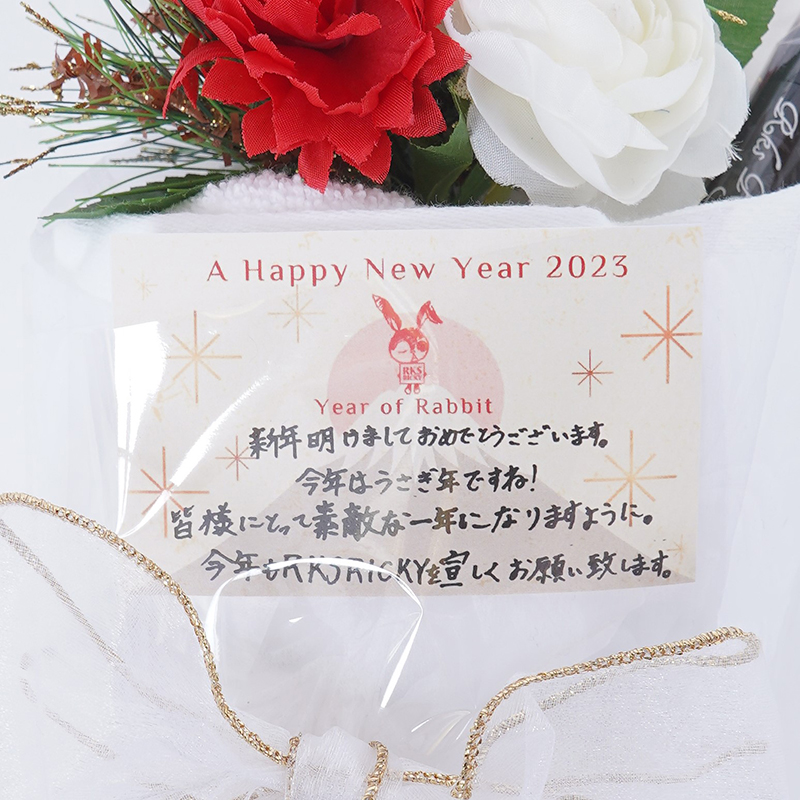 A Happy New Year 2023
RKS
RICKY
Year of Rabbit
新年明けましておめでとうございます。
今年はうさぎ年ですね!
皆様にとって素敵な一年になりますように。
今年もRKSRICKYを宣しくお願い致します。